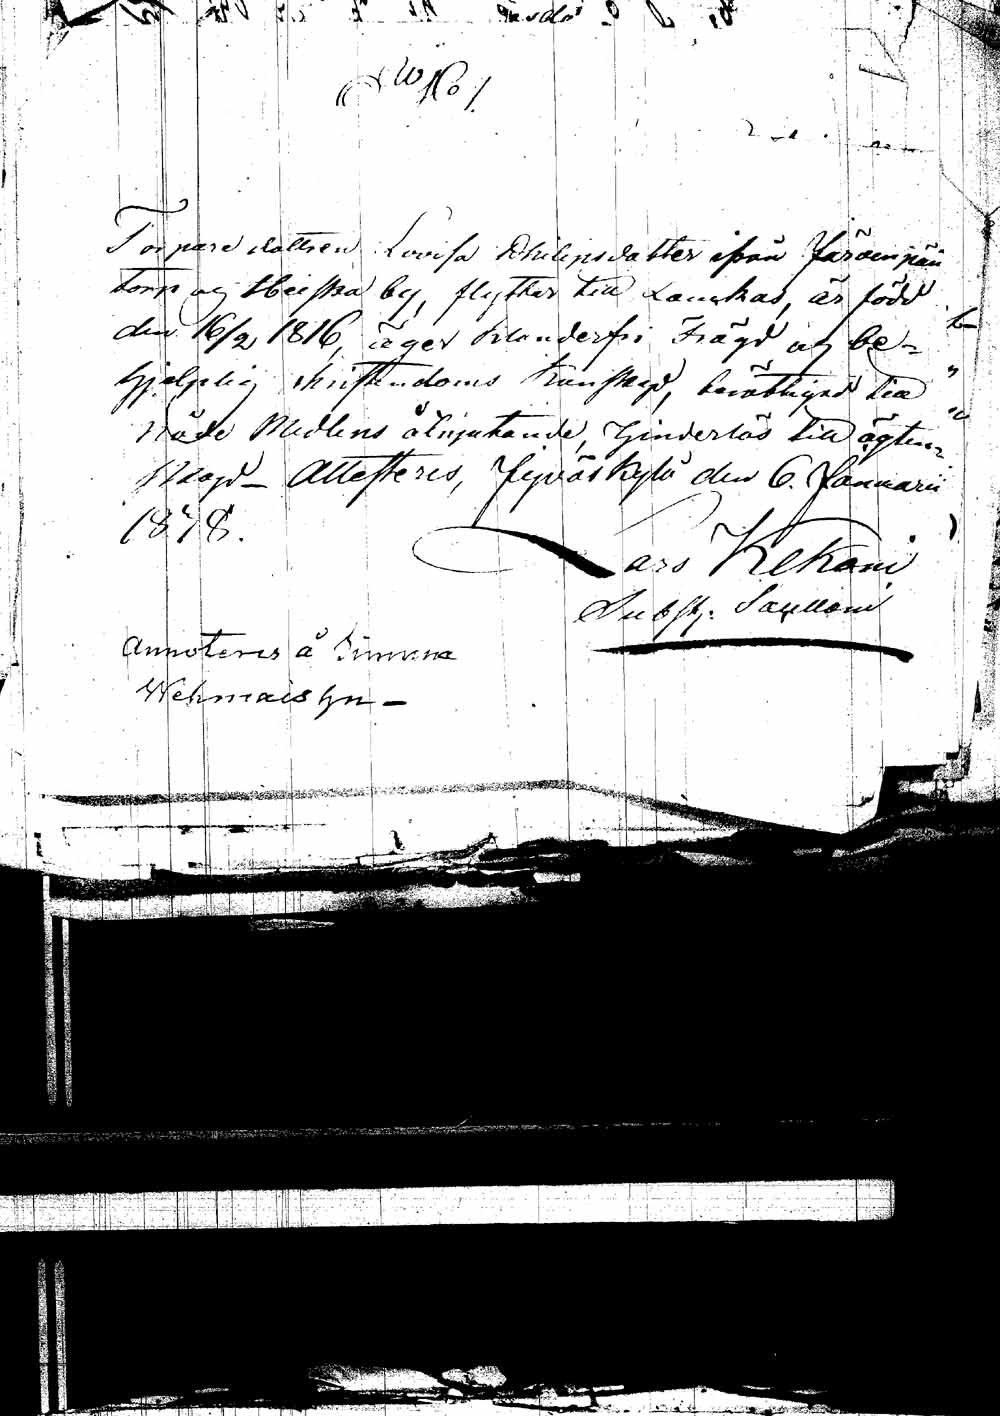 No 1.
Torpare dottren Lovisa Philipsdatter ifrån Järvenpää
torp og Heiska by, flyttar till Laukas, är född
den 16/2 1816, äger klanderfri Frägd og be-
hjelplig kristendoms kunskap, berättigad till
Nåde Medlens åtnjutande, hinderlös till ägten-
skap – Attesteres, Jyväskylä den 6. Januarii
1848.
Lars Kekoni
Subst. Sacellani
Annoteres å
Wehmais hn –